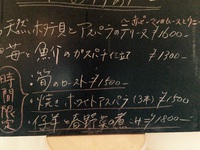 天然ホタテ貝とアスパラのテリーヌ ¥1600-
苺と魚介のガスパチョ仕立て ¥1300-
時間限定
筍のロースト ¥1500-
焼きホワイトアスパラ(3本) ¥1500
仔羊と春野菜の煮込み ¥1800-